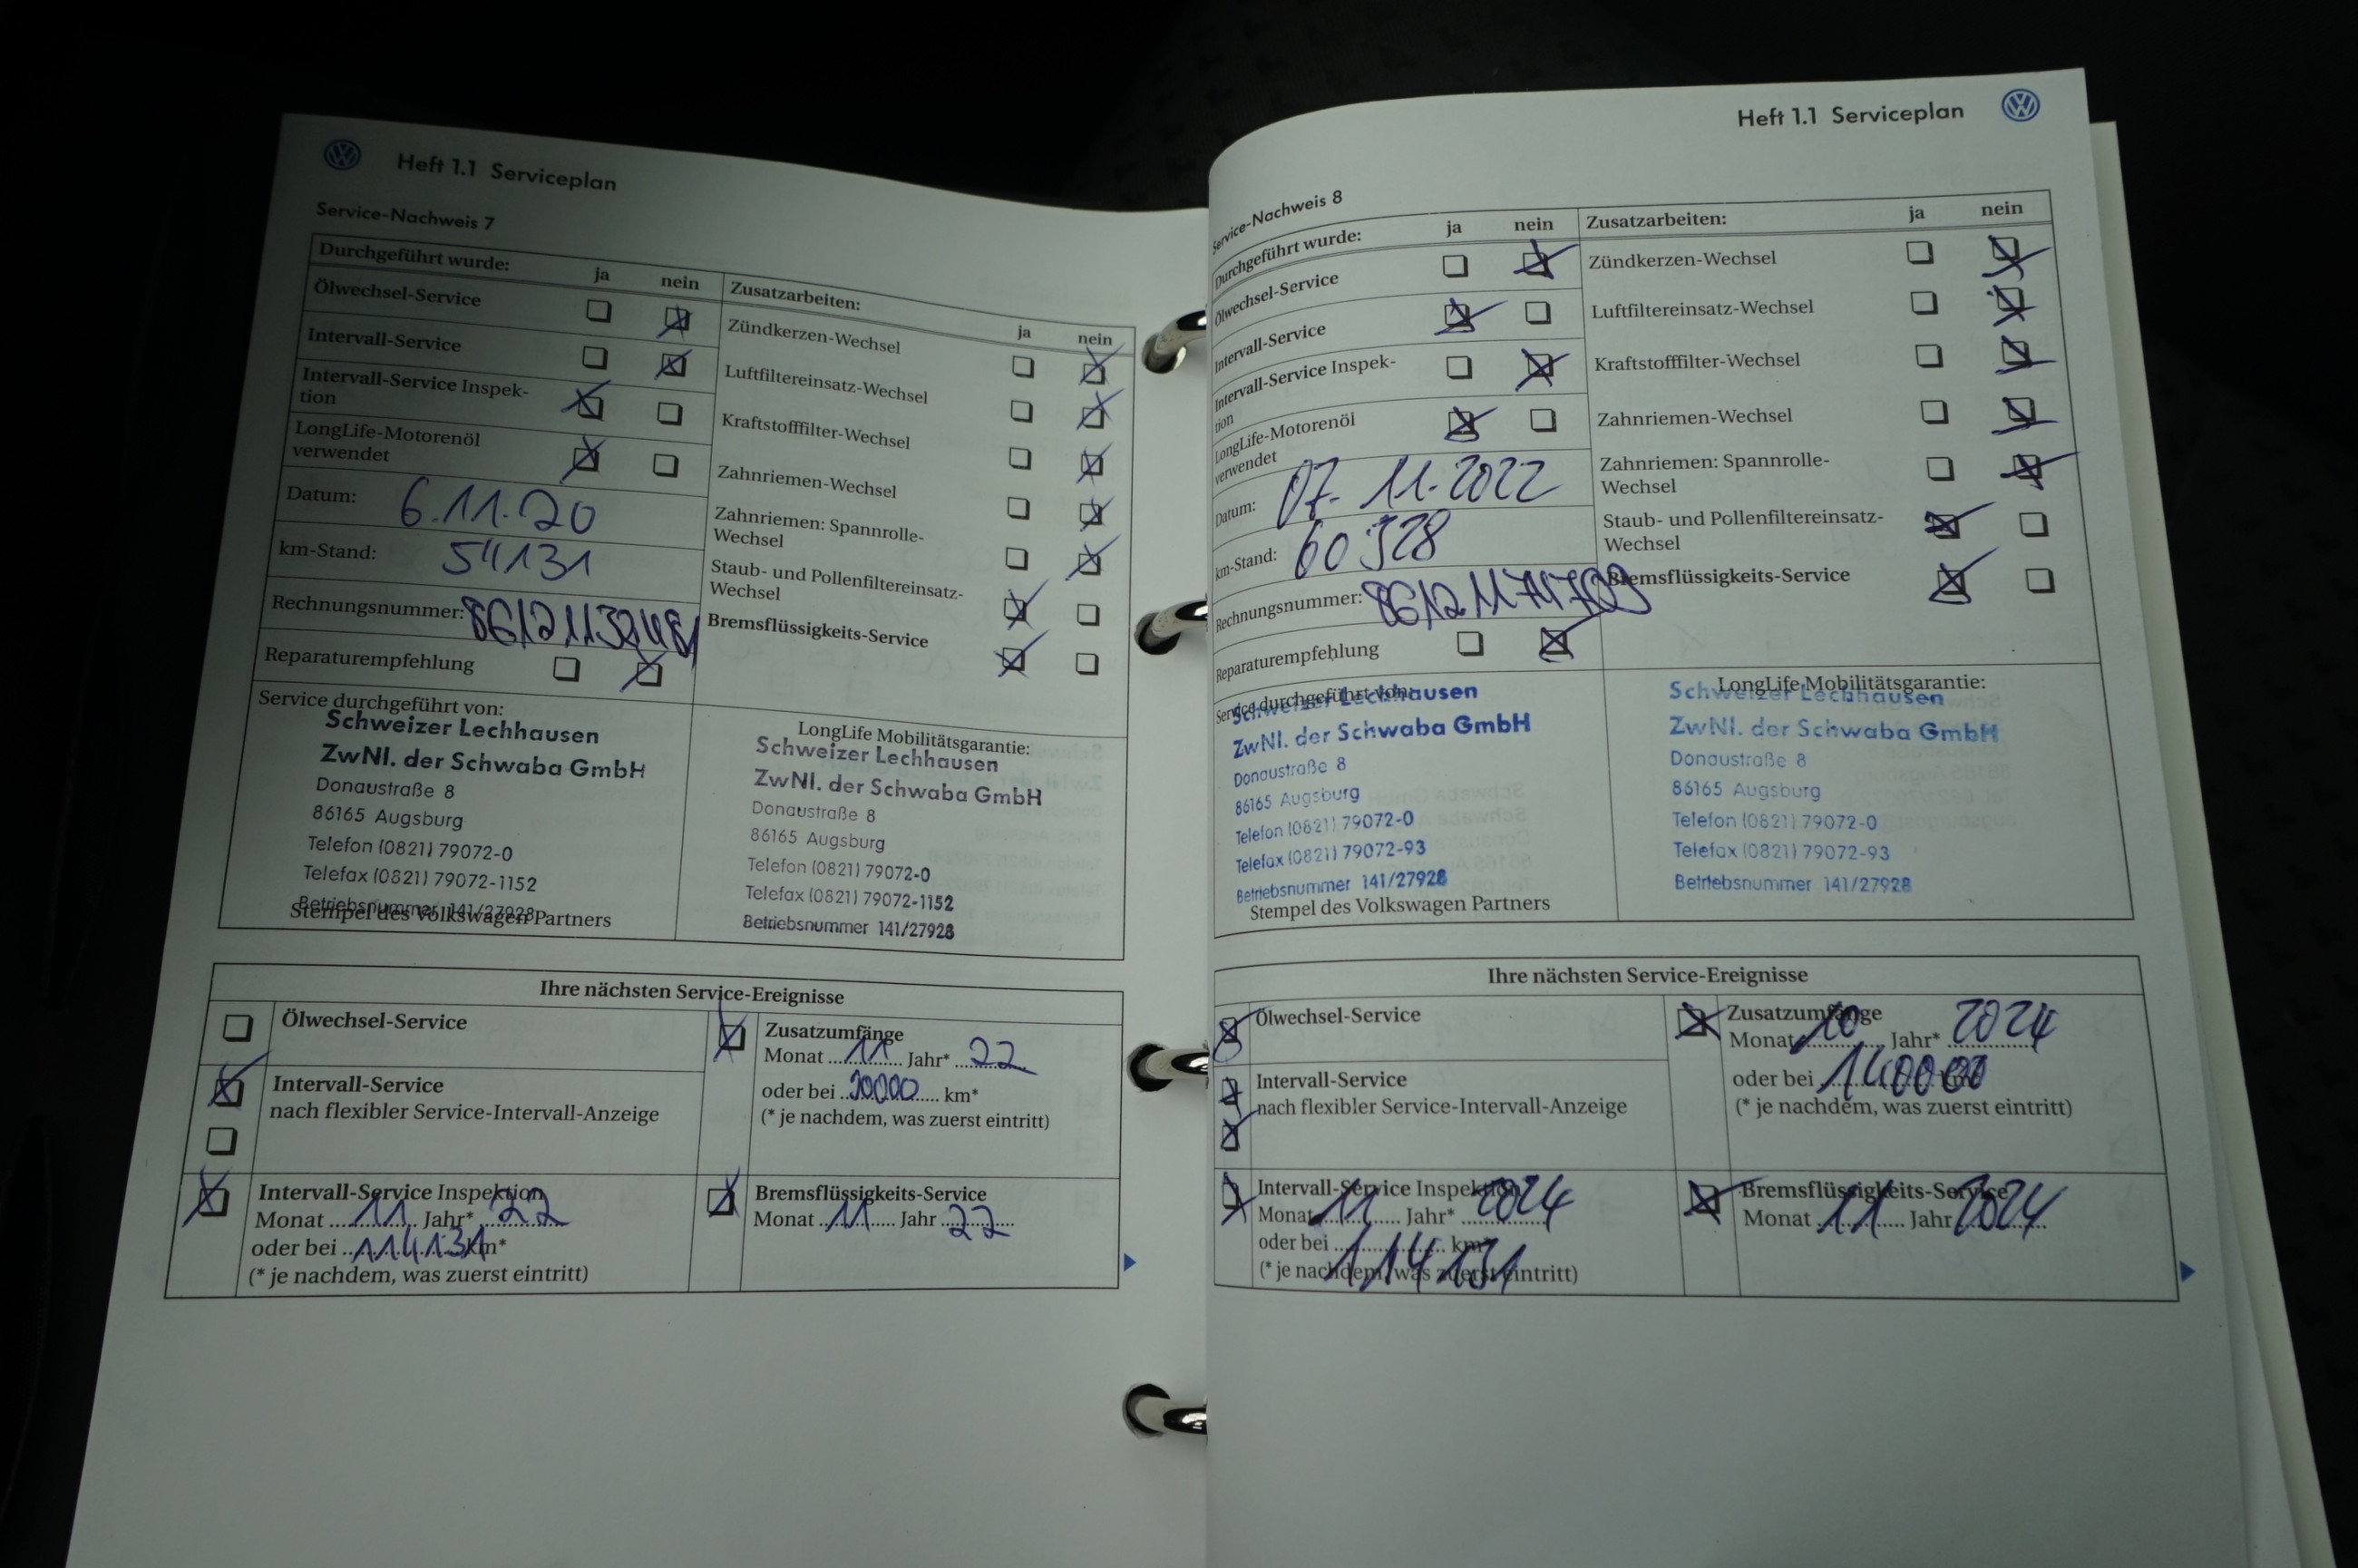 Heft 1.1 Serviceplan
Service-Nachweis 7
Durchgeführt wurde: ja nein
Ölwechsel-Service
Intervall-Service
Intervall-Service Inspek-
tion
LongLife-Motorenöl
verwendet
Datum: 6.11.20
km-Stand: 54131
Rechnungsnummer:
Reparaturempfehlung
Zusatzarbeiten: ja nein
Zündkerzen-Wechsel
Luftfiltereinsatz-Wechsel
Kraftstofffilter-Wechsel
Zahnriemen-Wechsel
Zahnriemen: Spannrolle-
Wechsel
Staub- und Pollenfiltereinsatz-
Wechsel
Bremsflüssigkeits-Service
Service durchgeführt von:
Schweizer Lechhausen
ZwNl. der Schwaba GmbH
Donaustraße 8
86165 Augsburg
Telefon (0821) 79072-0
Telefax (0821) 79072-1152
Betriebsnummer 141/27928
Stempel des Volkswagen Partners
LongLife Mobilitätsgarantie:
Schweizer Lechhausen
ZwNl. der Schwaba GmbH
Donaustraße 8
86165 Augsburg
Telefon (0821) 79072-0
Telefax (0821) 79072-1152
Betriebsnummer 141/27928
Ihre nächsten Service-Ereignisse
Ölwechsel-Service
Intervall-Service
nach flexibler Service-Intervall-Anzeige
Intervall-Service Inspektion
Monat 11 Jahr* 22
oder bei 114131 km*
(* je nachdem, was zuerst eintritt)
Zusatzumfänge
Monat 11 Jahr* 22
oder bei km*
(* je nachdem, was zuerst eintritt)
Bremsflüssigkeits-Service
Monat 11 Jahr 22
Heft 1.1 Serviceplan
Service-Nachweis 8
Durchgeführt wurde: ja nein
Ölwechsel-Service
Intervall-Service
Intervall-Service Inspek-
tion
LongLife-Motorenöl
verwendet
Datum: 07.11.2022
km-Stand: 60328
Rechnungsnummer:
Reparaturempfehlung
Zusatzarbeiten: ja nein
Zündkerzen-Wechsel
Luftfiltereinsatz-Wechsel
Kraftstofffilter-Wechsel
Zahnriemen-Wechsel
Zahnriemen: Spannrolle-
Wechsel
Staub- und Pollenfiltereinsatz-
Wechsel
Bremsflüssigkeits-Service
Service durchgeführt von:
Schweizer Lechhausen
ZwNl. der Schwaba GmbH
Donaustraße 8
86165 Augsburg
Telefon (0821) 79072-0
Telefax (0821) 79072-93
Betriebsnummer 141/27928
Stempel des Volkswagen Partners
LongLife Mobilitätsgarantie:
Schweizer Lechhausen
ZwNl. der Schwaba GmbH
Donaustraße 8
86165 Augsburg
Telefon (0821) 79072-0
Telefax (0821) 79072-93
Betriebsnummer 141/27928
Ihre nächsten Service-Ereignisse
Ölwechsel-Service
Intervall-Service
nach flexibler Service-Intervall-Anzeige
Intervall-Service Inspektion
Monat 11 Jahr* 2024
oder bei 114131 km*
(* je nachdem, was zuerst eintritt)
Zusatzumfänge
Monat 10 Jahr* 2024
oder bei
(* je nachdem, was zuerst eintritt)
Bremsflüssigkeits-Service
Monat 11 Jahr 2024